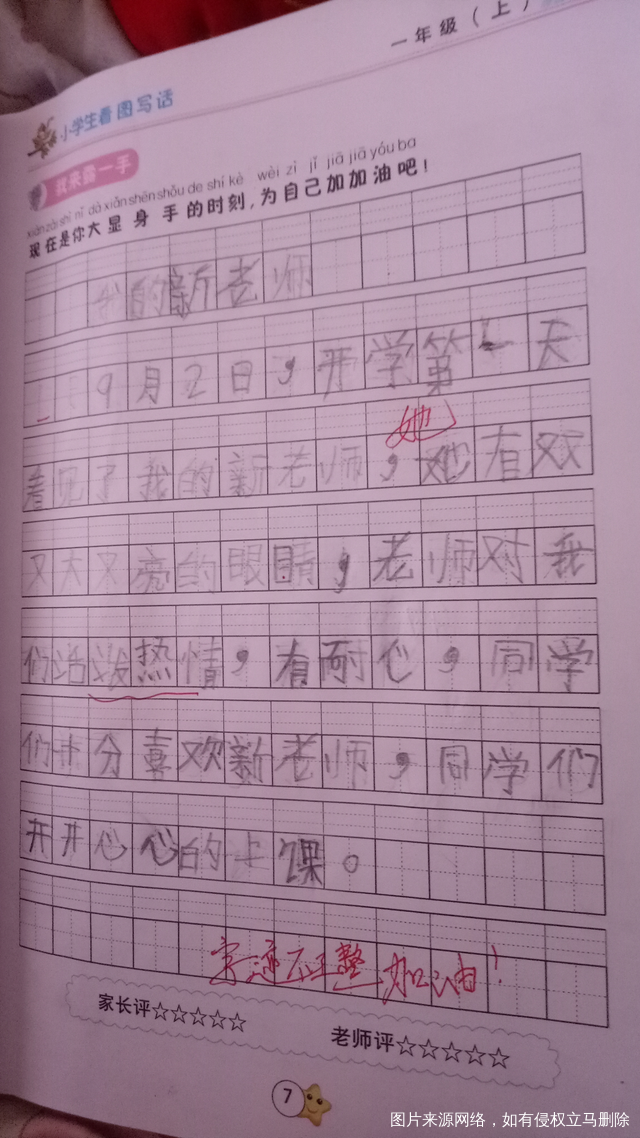 一年级（上）
小学生看图写话
我来露一手
xiàn zài shì nǐ dà xiǎn shēn shǒu de shí kè wèi zì jǐ jiā jiā yóu ba
现在是你大显身手的时刻，为自己加加油吧！
我的新老师
9月2日，开学第一天
她
看见了我的新老师，她有双
又大又亮的眼睛，老师对我
们活泼热情，有耐心，同学
们十分喜欢新老师，同学们
开开心心的上课。
字迹工整，加油！
家长评☆☆☆☆☆
老师评☆☆☆☆☆
7
图片来源网络，如有侵权立马删除